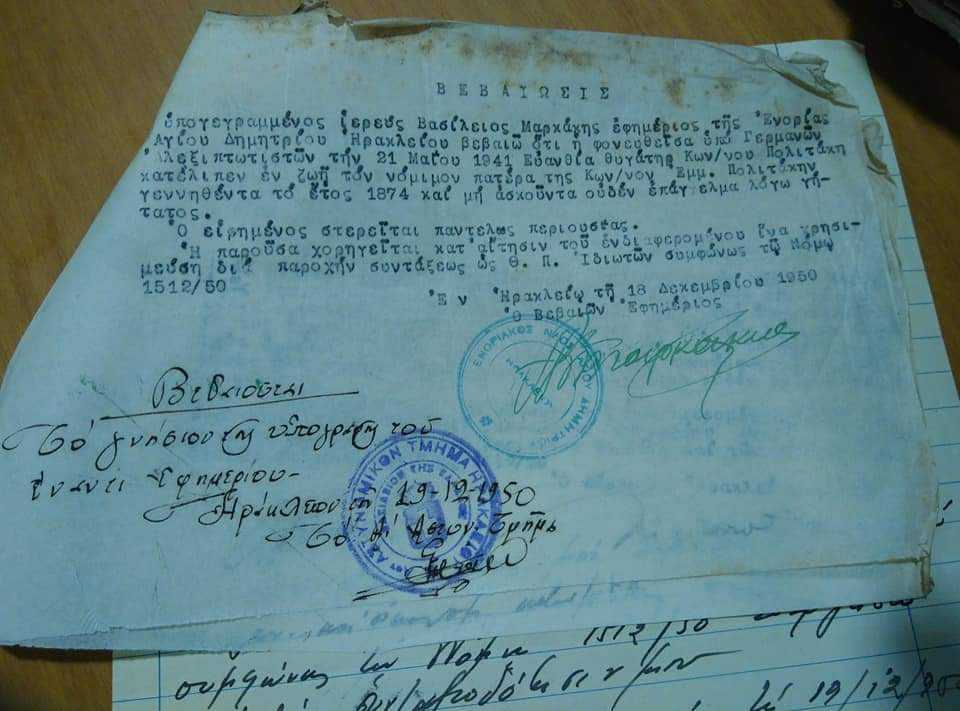 ΒΕΒΑΙΩΣΙΣ
ὑπογεγραμμένος ἱερεύς Βασίλειος Μαρκάκης ἐφημέριος τῆς Ἐνορίας
Ἁγίου Δημητρίου Ἡρακλείου βεβαιῶ ὅτι ἡ φονευθεῖσα ὑπό Γερμανῶν
Ἀλεξιπτωτιστῶν τήν 21 Μαΐου 1941 Εὐανθία θυγάτηρ Κων/νου Πολιτάκη
κατέλιπεν ἐν ζωῇ τόν νόμιμον πατέρα της Κων/νον Ἐμμ. Πολιτάκην
γεννηθέντα τό ἔτος 1874 καί μή ἀσκοῦντα οὐδέν ἐπάγγελμα λόγω γή-
τατος.
Ὁ εἰρημένος στερεῖται παντελῶς περιουσίας.
Ἡ παροῦσα χορηγεῖται κατ' αἴτησιν τοῦ ἐνδιαφερομένου ἵνα χρησι-
μεύσῃ διά παροχήν συντάξεως ὡς Θ. Π. Ἰδιωτῶν συμφώνως τῷ Νόμῳ
1512/50
Ἐν Ἡρακλείῳ τῇ 18 Δεκεμβρίου 1950
Ὁ Βεβαιῶν Ἐφημέριος
ΕΝΟΡΙΑΚΟΣ ΝΑΟΣ ΑΓΙΟΥ ΔΗΜΗΤΡΙΟΥ
Βεβαιοῦται
Τό γνήσιον τῆς ὑπογραφῆς τοῦ
ἔναντι Ἐφημερίου
Ἡράκλειον τῇ 19-12-1950
Τό Α' Ἀστυν. Τμῆμα
ΑΣΤΥΝΟΜΙΚΟΝ ΤΜΗΜΑ ΗΡΑΚΛΕΙΟΥ
ΒΑΣΙΛΕΙΟΝ ΤΗΣ ΕΛΛΑΔΟΣ
συμφώνως τῷ Νόμῳ 1512/50
19/12/950